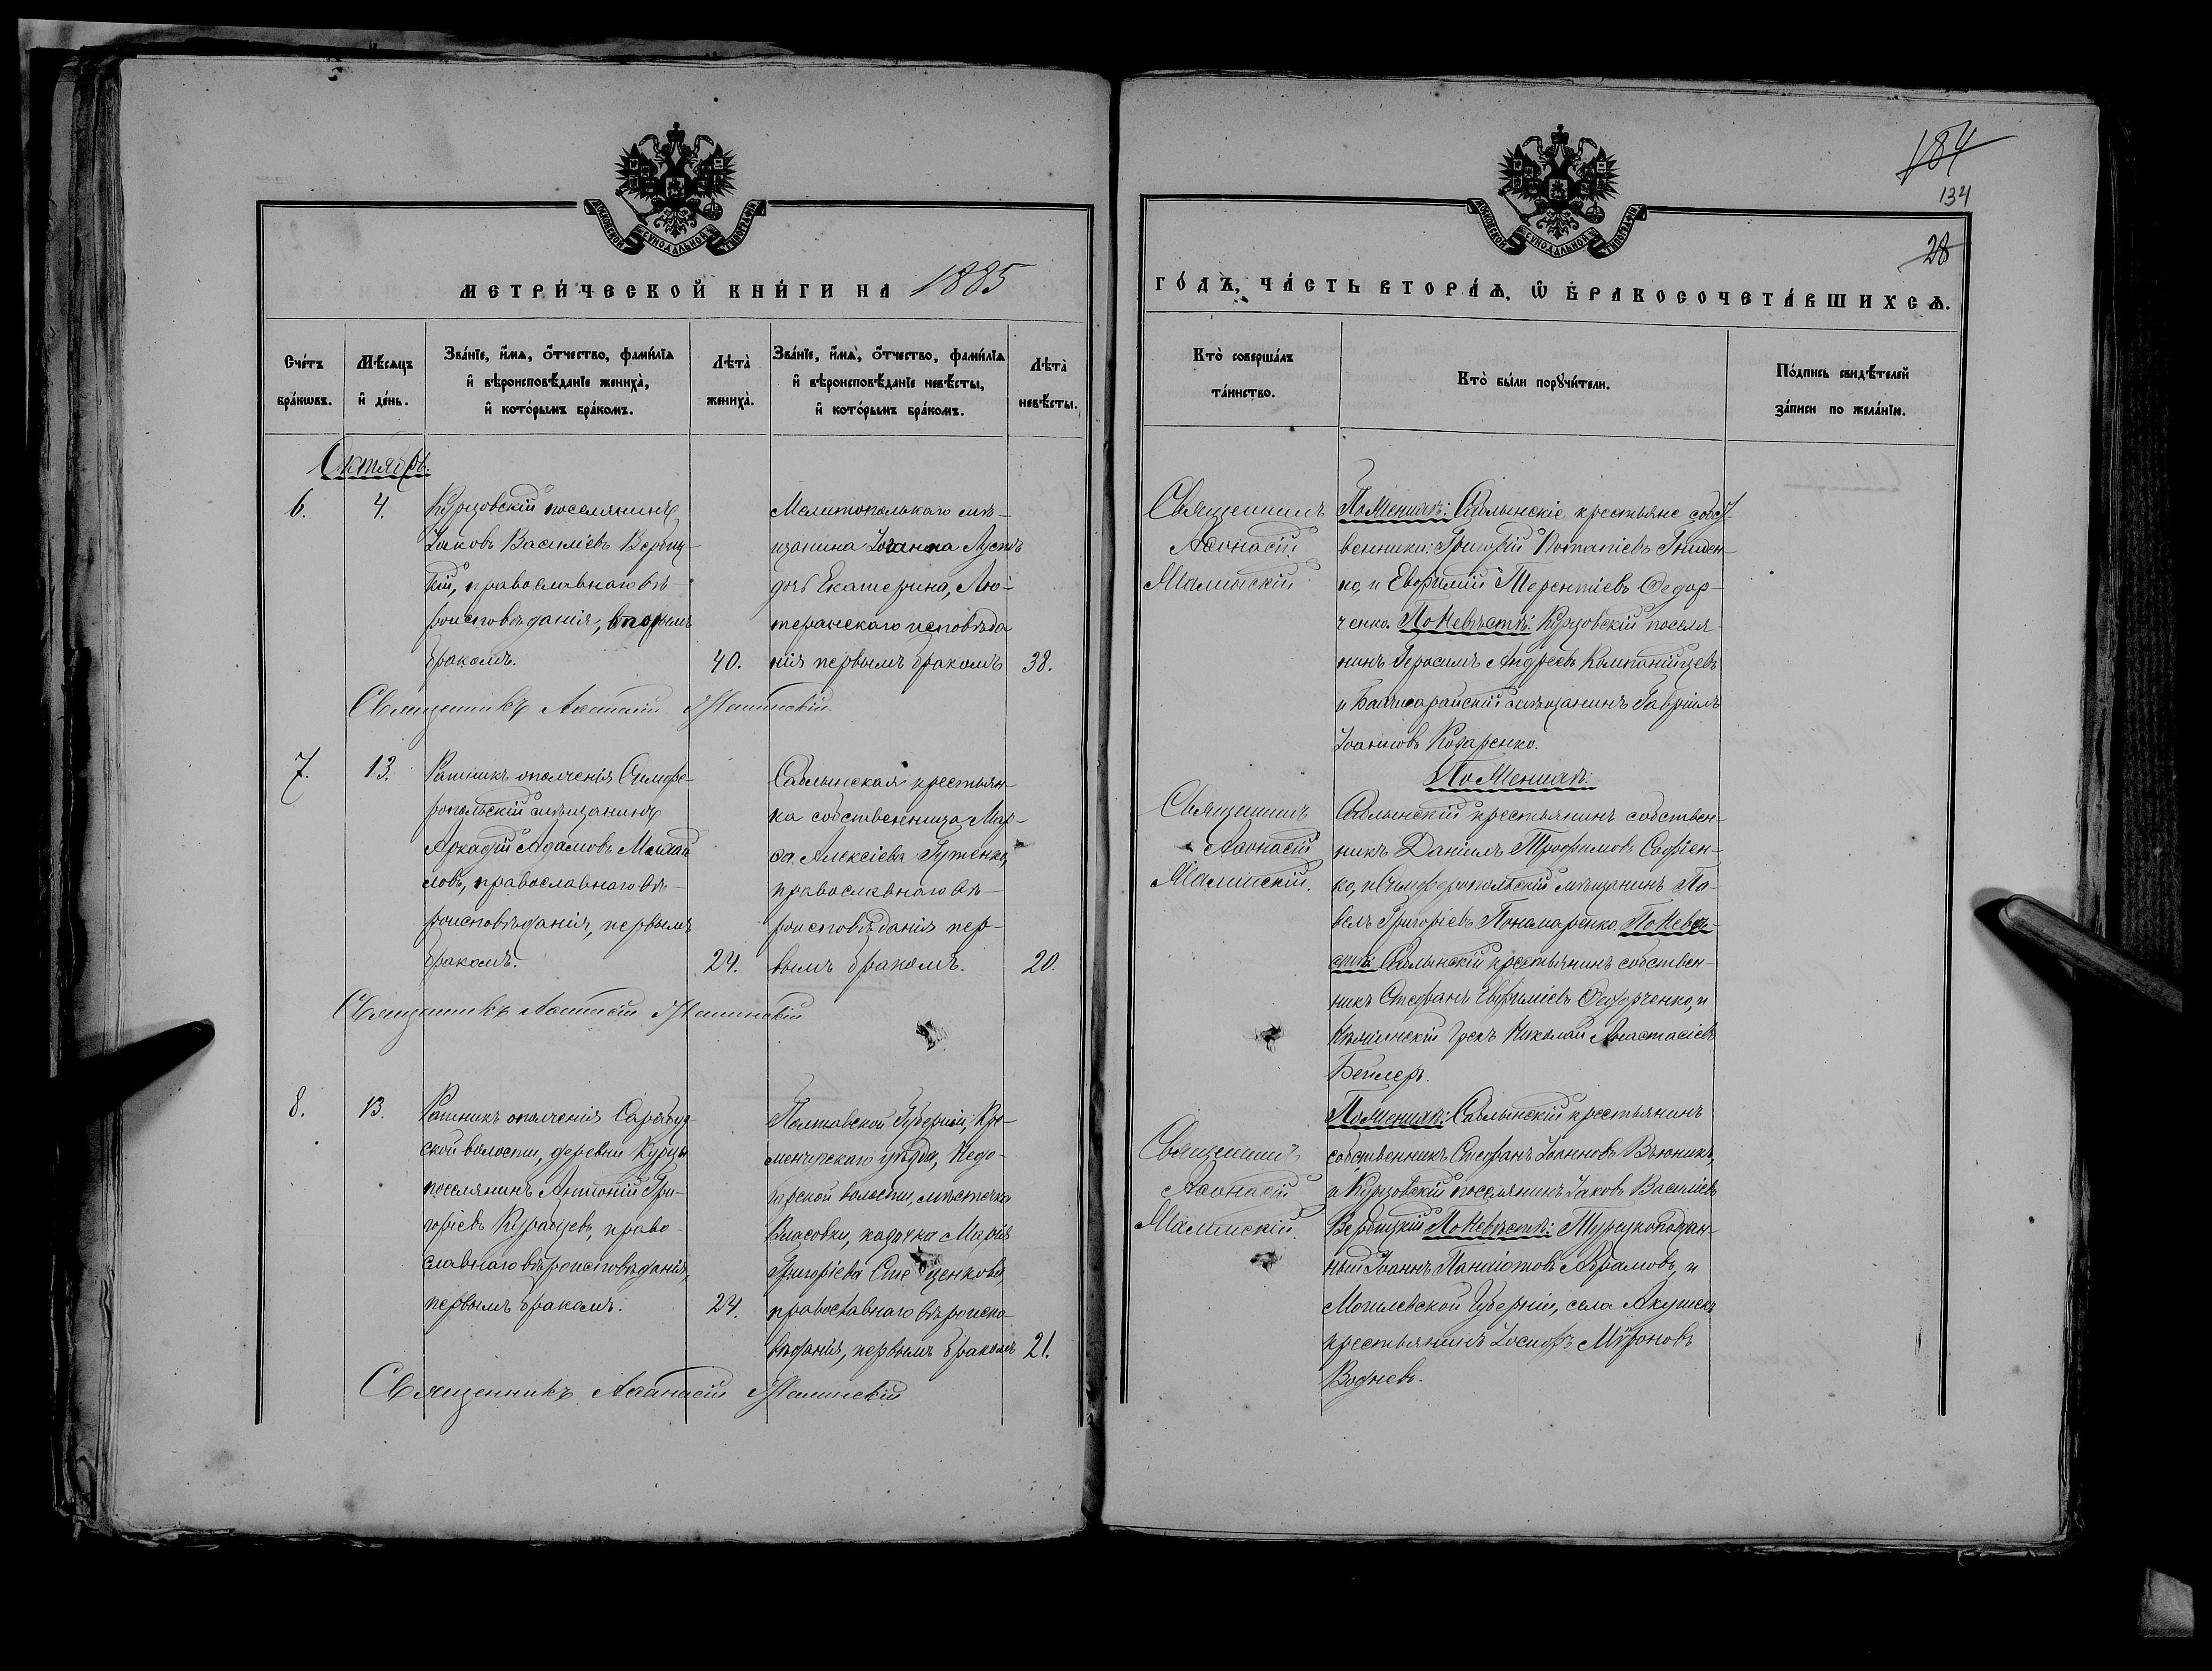 184
134
28
МОСКОВСКОЙ СѴНОДАЛЬНОЙ ТИПОГРАФІИ
МОСКОВСКОЙ СѴНОДАЛЬНОЙ ТИПОГРАФІИ
МЕТРИ́ЧЕСКОЙ КНИ́ГИ НА 1885
ГО́ДЪ, ЧА́СТЬ ВТОРА́Ѧ, Ѿ БРАКОСОЧЕТА́ВШИХСѦ.
Сче́тъ бра́кѡвъ.
Мѣ́сѧцъ и҆ де́нь.
Зва́нїе, и҆́мѧ, ѻ҆́тчество, фами́лїѧ
и҆ вѣроисповѣ́данїе жениха̀,
и҆ кото́рымъ бра́комъ.
Лѣ́та̀ жениха̀.
Зва́нїе, и҆́мѧ, ѻ҆́тчество, фами́лїѧ
и҆ вѣроисповѣ́данїе невѣ́сты,
и҆ кото́рымъ бра́комъ.
Лѣ́та̀ невѣ́сты.
Кто̀ соверша́лъ
та́инство.
Кто̀ бы́ли порꙋчи́тели.
По́дпись свидѣ́телей
за́писи по жела́нїю.
Октябрь.
6.
4.
Курцовскій поселянинъ
Іаковъ Василіевъ Вербиц-
кій, православнаго вѣ-
роисповѣданія, вторымъ
бракомъ.
40.
Мелитополькаго мѣ-
щанина Іоанна
дочь Екатерина, Лю-
теранскаго исповѣда
нія первымъ бракомъ
38.
Священникъ
Аѳонасій
Малинскій
По Женихѣ: Саблынскіе крестьяне собст-
венники: Григорій Потапіевъ Гниден-
ко, и Евфимій Терентіевъ Федор-
ченко. По Невѣстѣ: Курцовскій поселя-
нинъ Герасимъ Андреевъ Компанійцевъ
и Бахчисарайскій мѣщанинъ Гавріилъ
Іоанновъ Козаренко.
Священникъ Аѳанасій Малинскій
7.
13.
Ратникъ ополченія Симфе-
ропольскій мѣщанинъ
Аркадій Адамовъ
ловъ, православнаго вѣ-
роисповѣданія, первымъ
бракомъ.
24.
Саблынская крестьян-
ка собственница Мар-
ѳа Алексіева Гутенко,
православнаго вѣ-
роисповѣданія пер-
вымъ бракомъ.
20.
Священникъ
Аѳонасій
Малинскій.
По Женихѣ:
Саблынскій крестьянинъ собствен-
никъ Даніилъ Трофимовъ Софіен-
ко, и Симферопольскій мѣщанинъ Па-
велъ Григоріевъ Пономаренко. По Невѣ-
стѣ: Саблынскій крестьянинъ собствен-
никъ Стефанъ Евфиміевъ Федорченко, и
Грекъ Николай Анастасіевъ
Бейлеръ.
Священникъ Аѳанасій Малинскій
8.
13.
Ратникъ ополченія Сарабуз
ской волости, деревни Курцы
поселянинъ Антоній Гри-
горіевъ право-
славнаго вѣроисповѣданія,
первымъ бракомъ.
24.
Полтавской Губерніи, Кре-
менчугскаго уѣзда, Недо-
гарской волости, мѣстечка
Власовки, козачка Марія
Григоріева Стеценкова,
православнаго вѣроиспо-
вѣданія, первымъ бракомъ
21.
Священникъ
Аѳонасій
Малинскій.
По Женихѣ: Саблынскій крестьянинъ
собственникъ Стефанъ Іоанновъ Вьюникъ,
и Курцовскій поселянинъ Іаковъ Василіевъ
Вербицкій По Невѣстѣ: Турецкоподдан-
ный Іоаннъ Панаіотовъ Абрамовъ, и
Могилевской Губерніи, села
крестьянинъ Іосифъ Мѵроновъ
Водневъ.
Священникъ Аѳанасій Малинскій